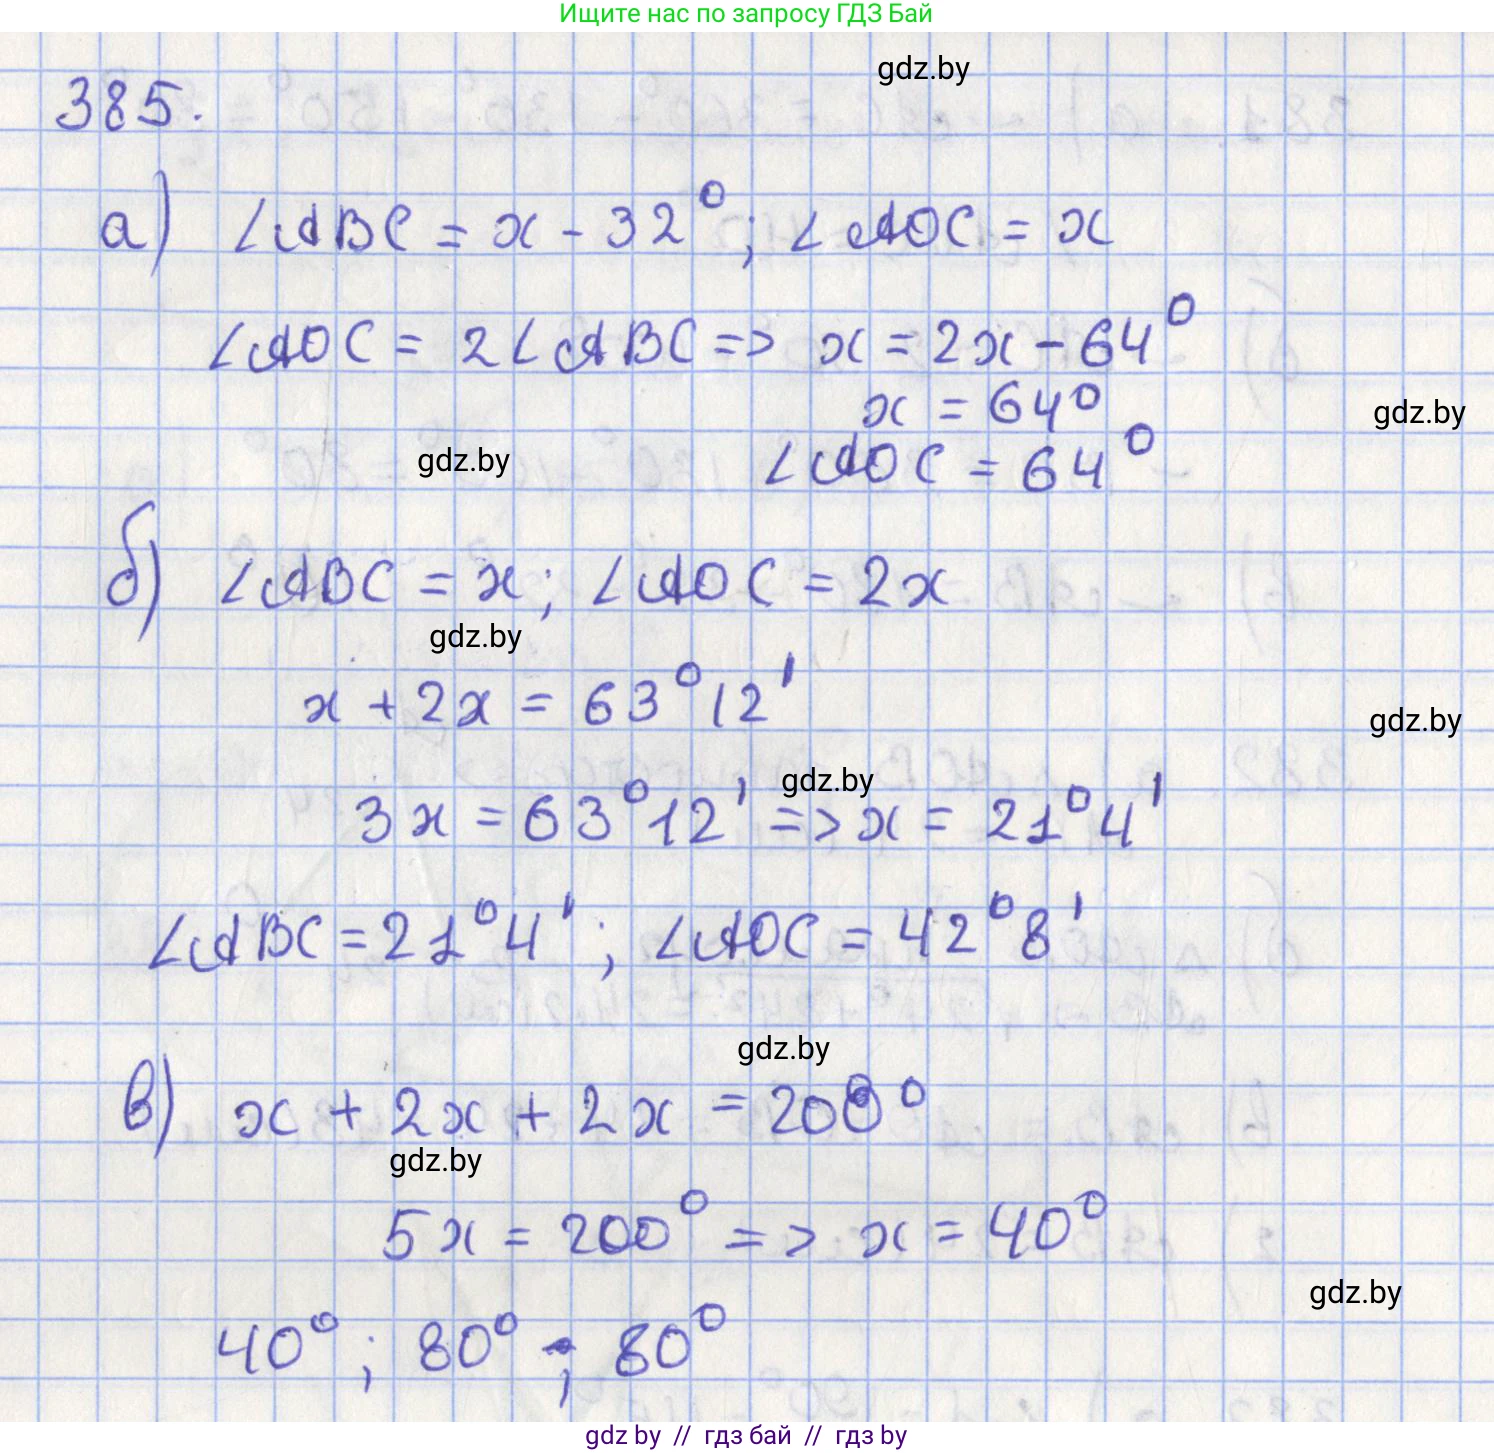 Ищите нас по запросу ГДЗ Бай
gdz.by
385.
а) ∠ABC = x - 32°; ∠AOC = x
∠AOC = 2∠ABC => x = 2x - 64°
x = 64°
gdz.by
gdz.by
∠AOC = 64°
б) ∠ABC = x; ∠AOC = 2x
gdz.by
x + 2x = 63°12'
gdz.by
gdz.by
3x = 63°12' => x = 21°4'
∠ABC = 21°4'; ∠AOC = 42°8'
gdz.by
в) x + 2x + 2x = 200°
gdz.by
5x = 200° => x = 40°
gdz.by
40°; 80°; 80°
gdz by // гдз бай // гдз by